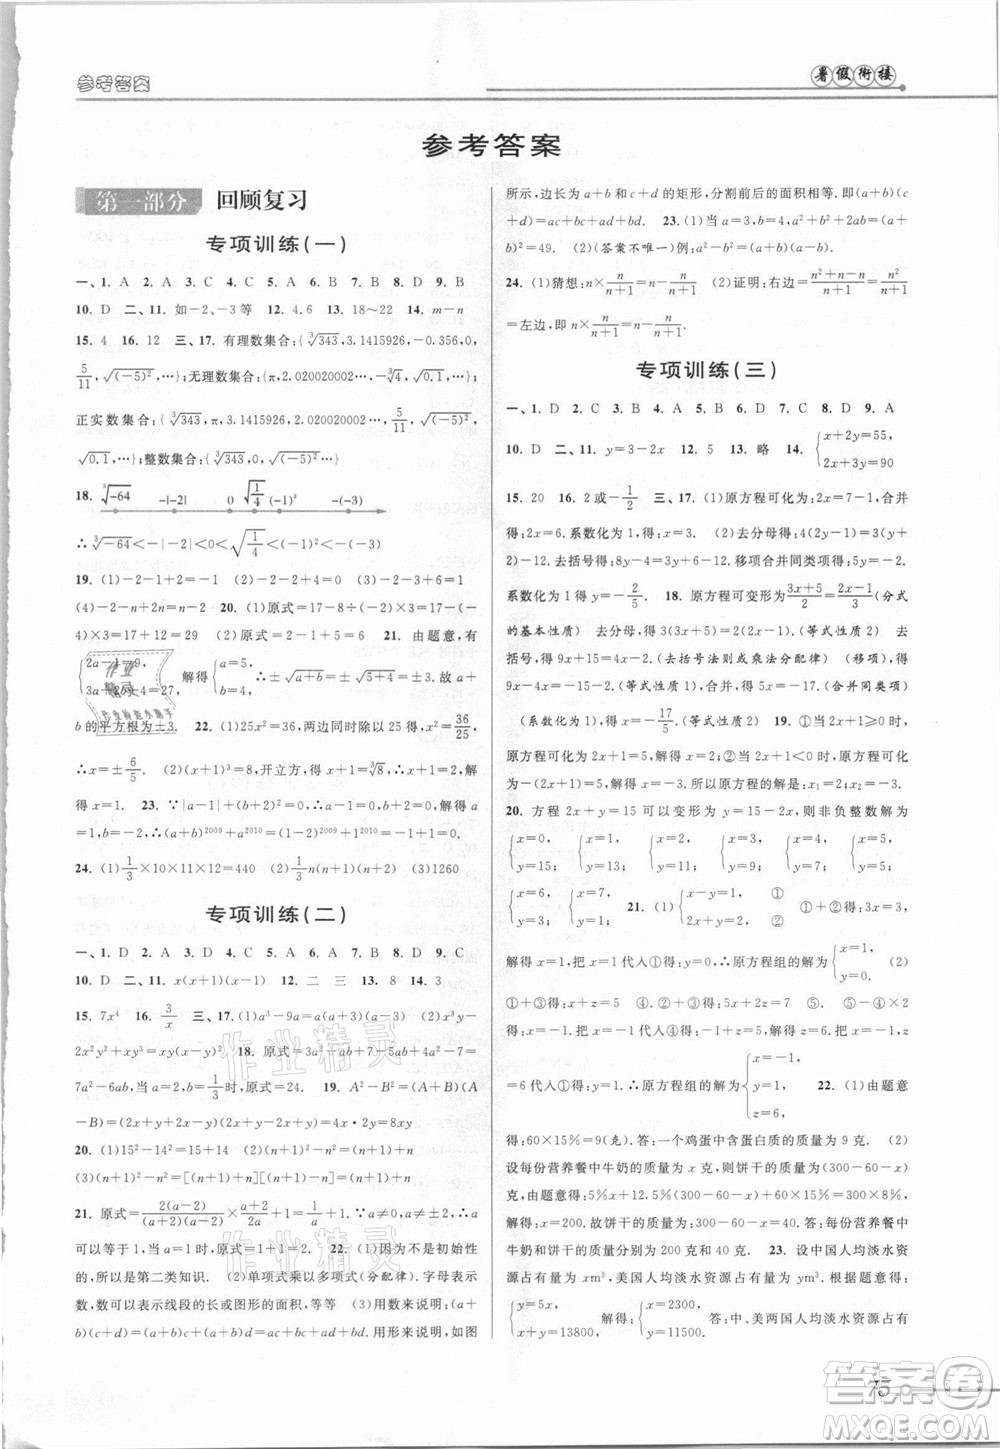 参考答案
暑假衔接
参考答案
第一部分 回顾复习
专项训练(一)
一、1. A 2. A 3. C 4. C 5. C 6. A 7. B 8. D 9. B
10. D 二、11. 如-2、-3等 12. 4,6 13. 18~22 14. m-n
15. 4 16. 12 三、17. 有理数集合:{∛343,3.1415926,-0.3,
5/11,√(-5)²,…};无理数集合:{π,2.020020002…,-∛3,√0.1,…};
正实数集合:{∛343,π,3.1415926,2.020020002…,5/11,√(-5)²,
√0.1,…};整数集合:{∛343,√(-5)²,…}
18. ∛-64 -|-2| 0 √1/4 (-1)² -(-3)
∴∛-64<-|-2|<0<√1/4<(-1)²<-(-3)
19. (1)-2-1+2=-1 (2)-2-2+4=0 (3)-2-3+6=1
(4)-2×3+2×2=-2 20. (1)原式=17-8÷(-2)×3=17-
(-4)×3=29. (2)原式=2-1+5=6. 21. 由题意,有
{2a-1=9, 3a+2b+4=27, 解得{a=5, b=4, ∴±√a+b=±√5+4=±3.故a+
b的平方根为±3. 22. (1)25x²=36,两边同时除以25得,x²=36/25
∴x=±6/5 (2)(x+1)³=8,开立方,得:x+1=∛8,x+1=2,解
得x=1. 23. ∵|a-1|+(b+2)²=0,∴a-1=0,b+2=0,解得a
=1,b=-2,∴(a+b)²⁰⁰⁹+a²⁰¹⁰=(1-2)²⁰⁰⁹+1²⁰¹⁰=-1+1=0.
24. (1)1/3×10×11×12=440 (2)1/3n(n+1)(n+2) (3)1260
专项训练(二)
一、1. D 2. A 3. D 4. C 5. A 6. A 7. D 8. D 9. C
10. D 二、11. x(x+1)(x-1) 12. 二 三 13. 8 14. 3
15. 7x⁴ 16. 3/x 三、17. (1)a³-9a=a(a+3)(a-3) (2)x³y-
2x²y²+xy³=xy(x-y)² 18. 原式=3a²-a+4a²-1+a+1=
7a²-2a+1-6ab,当a=-1,b=1/3时,原式=24. 19. A²-B²=(A+B)(A
-B)=(2x+y+2x-y)(2x+y-2x+y)=4x·2y=8xy.
20. (1)15²-14²=15+14 (2)(n+1)²-n²=(n+1)+n
(3)证明:(n+1)²-n²=[(n+1)+n][(n+1)-n]=(n+1)+n
21. 原式=2(a-2)/(a+2)(a-2)×a+2/2a+1=1/a+1,∴a
可以等于1,当a=1时,原式=1+1=2. 22. (1)不是初始性
的,所以是第二类知识. (2)单项式乘以多项式(分配律).字母表示
数,数可以表示线段的长或图形的面积,等等 (3)用数来说明:(a+
b)(c+d)=(a+b)c+(a+b)d=ac+bc+ad+bd.用形来说明,如图
所示,边长为a+b和c+d的矩形,分割前后的面积相等.即(a+b)(c
+d)=ac+ad+bc+bd. 23. (1)当a=3,b=4,a²+b²+2ab=(a+
b)²=49. (2)(答案不唯一)例:a²-b²=(a+b)(a-b).
24. (1)猜想:n×n/n+1=n-n/n+1 (2)证明:右边=n²+n-n/n+1=n²/n+1
=左边,即n×n/n+1=n-n/n+1.
专项训练(三)
一、1. D 2. C 3. A 4. A 5. C 6. D 7. C 8. D 9. A
10. D 二、11. y=3-2x 12. 5 13. 略 14. {x+2y=55, x+3y=90
15. 20 16. 2或-1/2 三、17. (1)原方程可化为:2x=7-1,合并
得:2x=6.系数化为1,得:x=3 (2)去分母得:4(2y-1)=3(y+
2)-12 去括号得:8y-4=3y+6-12.移项合并同类项得:5y=-2.
系数化为1得y=-2/5 18. 原方程可变形为3x+5/2=2x-1/3(分式
的基本性质) 去分母,得3(3x+5)=2(2x-1). (等式性质2) 去
括号,得9x+15=4x-2.(去括号法则或乘法分配律) (移项),得
9x-4x=-15-2.(等式性质1) 合并,得5x=-17.(合并同类项)
(系数化为1),得x=-17/5.(等式性质2) 19. ①当2x+1≥0时,
原方程可化为2x+1=5,解得x=2;②当2x+1<0时,原方程可化为
-(2x+1)=5,解得x=-3.所以原方程的解是:x₁=2,x₂=-3.
20. 方程2x+y=15可以变形为y=15-2x,则非负整数解为
{x=0, y=15; {x=1, y=13; {x=2, y=11; {x=3, y=9; {x=4, y=7; {x=5, y=5;
{x=6, y=3; {x=7, y=1. 21. (1){x-y=1, ① 2x+y=2, ② ①+②得:3x=3,
解得x=1,把x=1代入①得:y=0.∴原方程组的解为{x=1, y=0. (2)
①+③得:x+z=5④.②-④得:x=-1.把x=-1代入④得:z
=6代入①得:y=0.∴原方程组的解为{x=-1, y=0, z=6. 22. (1)由题意
得:60×15%=9(克).答:一个鸡蛋中含蛋白质的质量为9克. (2)
设每份营养餐中牛奶的质量为x克,则饼干的质量为(300-60-x)
克,由题意得:5%x+12.5%(300-60-x)+60×15%=300×8%,
解得:x=200.故饼干的质量为:300-60-x=40.答:每份营养餐中
牛奶和饼干的质量分别为200克和40克. 23. 设中国人均淡水资
源占有量为xm³,美国人均淡水资源占有量为ym³.根据题意得:
{y=5x, x+y=13800, 解得:{x=2300, y=11500. 答:中、美两国人均淡水资源占有
75
作业精灵
作业精灵
答案卷
MXQE.COM